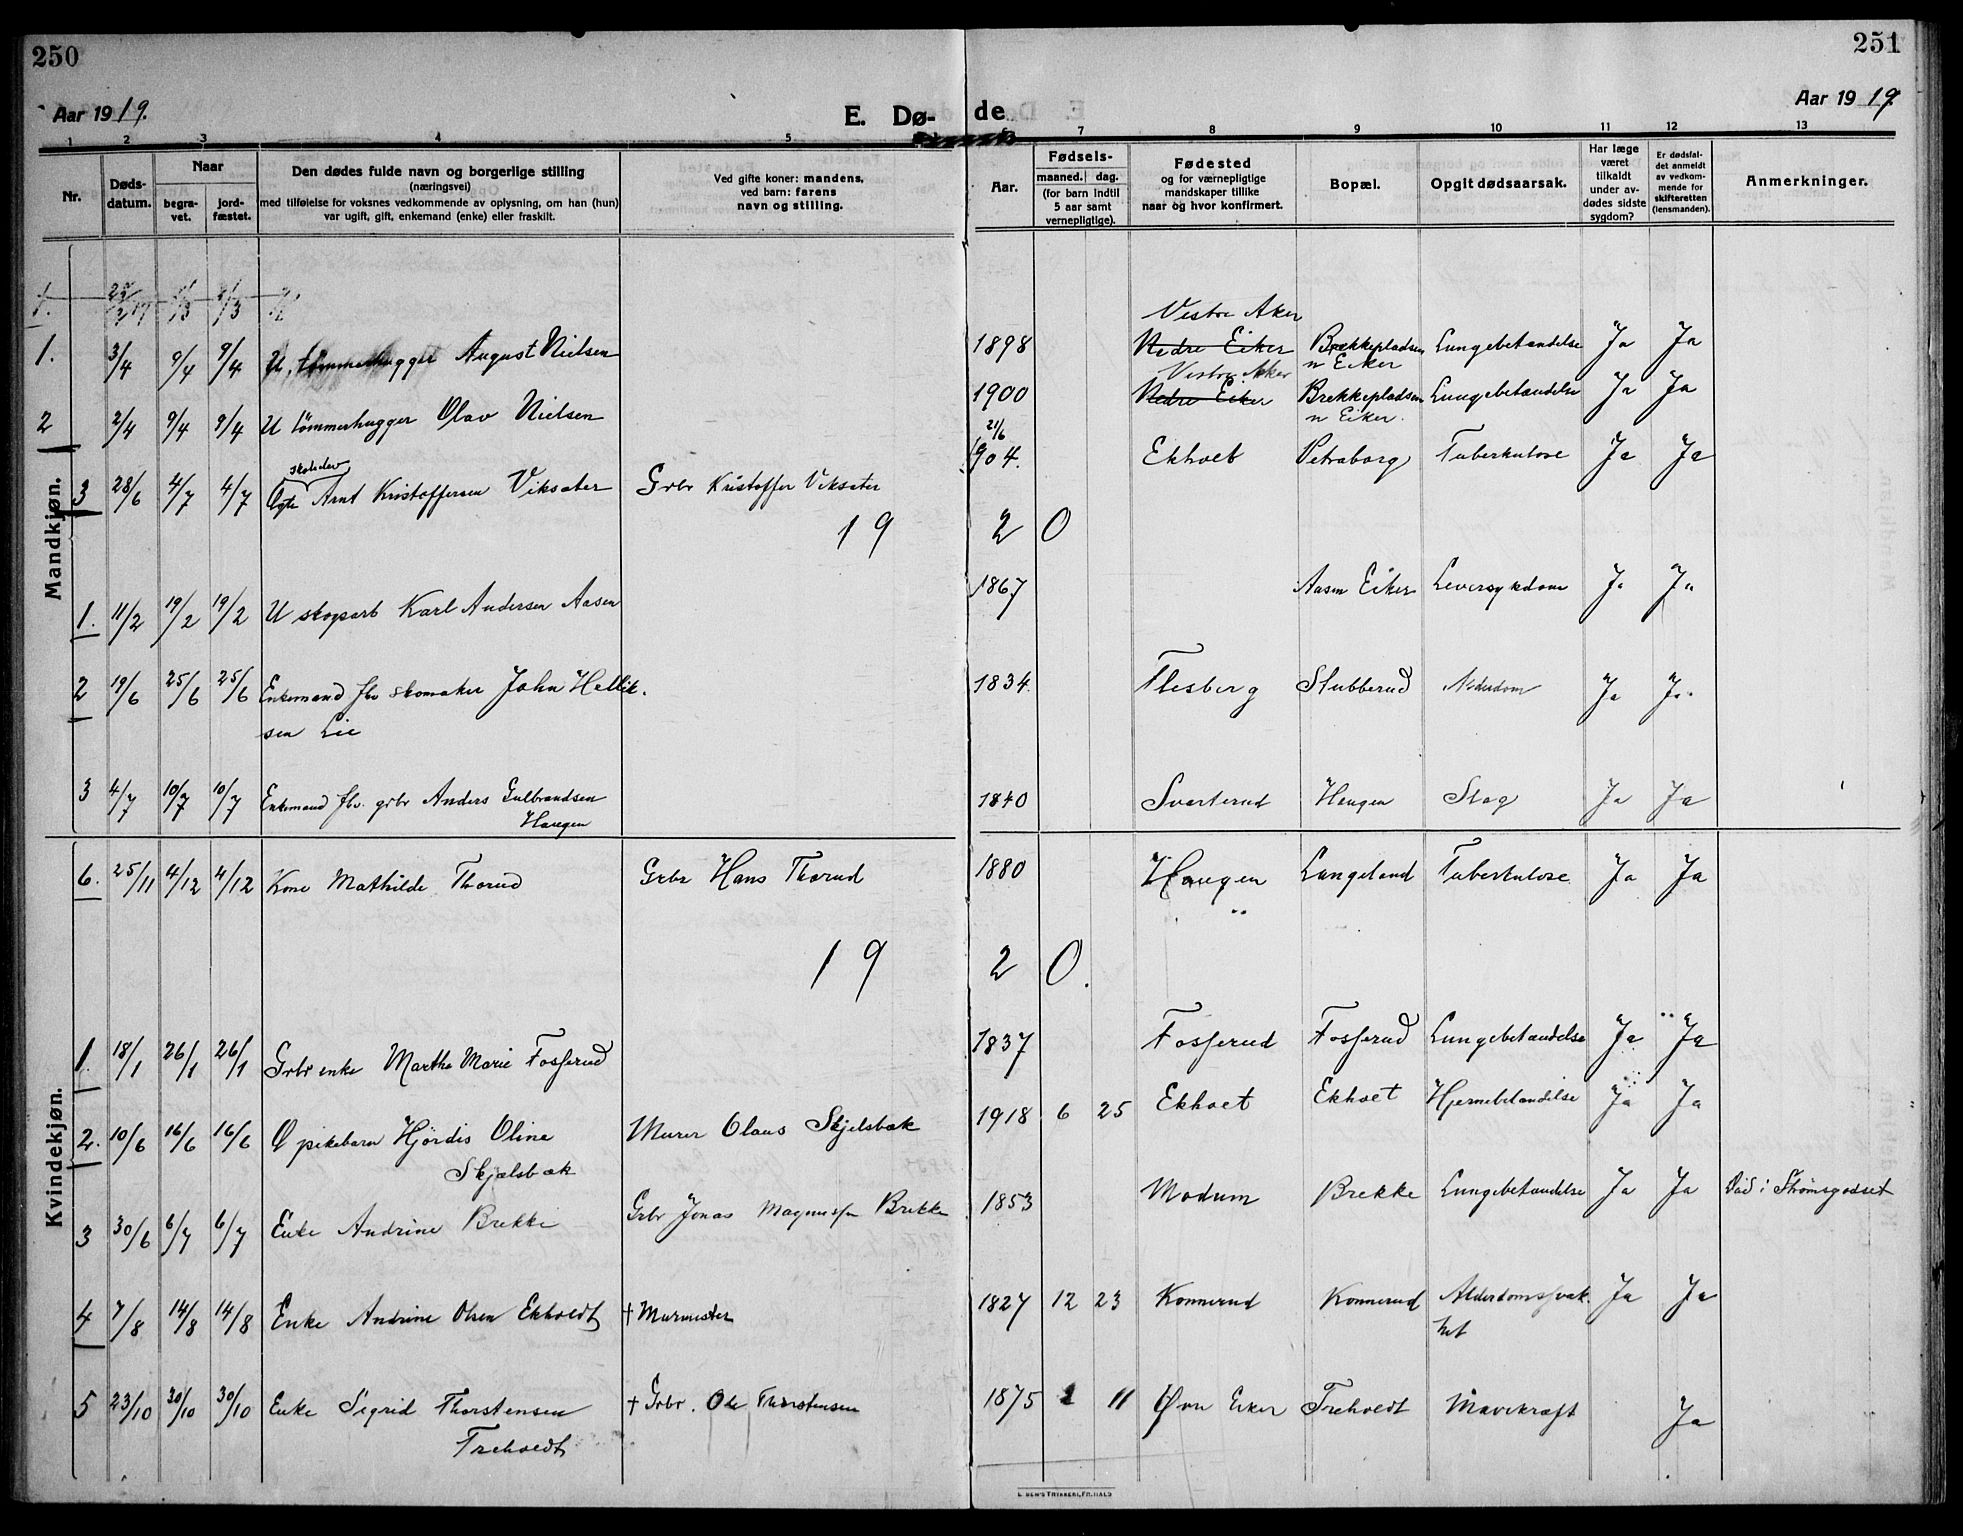 250
251
Aar 1919.
E. Dø-
de
Aar 1919
1 2 3 4 5 6 7 8 9 10 11 12 13
Nr.
Døds-
datum.
Naar
begra-
vet.
jord-
fæstet.
Den dødes fulde navn og borgerlige stilling
(næringsvei)
med tilføielse for voksnes vedkommende av oplysning, om han (hun)
var ugift, gift, enkemand (enke) eller fraskilt.
Ved gifte koner: mandens,
ved barn: farens
navn og stilling.
Aar.
Fødsels-
maaned. dag.
(for barn indtil
5 aar samt
vernepligtige).
Fødested
og for værnepligtige
mandskaper tillike
naar og hvor konfirmert.
Bopæl.
Opgit dødsaarsak.
Har læge
været
tilkaldt
under av-
dødes sidste
sygdom?
Er dødsfal-
det anmeldt
av vedkom-
mende for
skifteretten
(lensmanden).
Anmerkninger.
Mandkjøn.
Vestre Aker
1. 3/4 9/4 9/4 U. tømmerhugger August Nielsen 1898 Nedre Eiker Brækkepladsen Lungebetændelse Ja Ja
n Eiker
Vestre Aker
2 2/4 9/4 9/4 U tømmerhugger Olav Nielsen 1900 Nedre Eiker Brekkepladsen Lungebetændelse Ja Ja
n Eiker.
skoleelev 21/6
3 28/6 4/7 4/7 Ægte Arnt Kristoffersen Viksæter Grbr Kristoffer Viksæter 904. Ekholt Petraborg Tuberkulose Ja Ja
19 20
1. 11/2 19/2 19/2 U skogsarb Karl Andersen Aasen 1867 Aasen Eiker Leversykdom Ja Ja
2 19/6 25/6 25/6 Enkemand fhv skomaker John Hellik- 1834 Flesberg Stubberud Alderdom Ja Ja
sen Lie
3 4/7 10/7 10/7 Enkemand fhv. grbr Anders Gulbrandsen 1840 Svarterud Haugen Slag Ja Ja
Haugen
Kvindekjøn.
6. 25/11 4/12 4/12 Kone Mathilde Thorud Grbr Hans Thorud 1880 Haugen Langeland Tuberkulose Ja Ja
19 20.
1. 18/1 26/1 26/1 Grbr enke Marthe Marie Fosserud 1837 Fosserud Fosserud Lungebetændelse Ja Ja
2. 10/6 16/6 16/6 Æ pikebarn Hjördis Oline Murer Olaus Skjelsbæk 1918 6 25 Ekholt Ekholt Hjernebetændelse Ja Ja
Skjælsbæk
3 30/6 6/7 6/7 Enke Andrine Brekke Grbr Jonas Magnussen Brekke 1853 Modum Brekke Lungebetændelse Ja Ja Død i Strømsgodset
4 7/8 14/8 14/8 Enke Andrine Olsen Ekholdt † Murmester 1827 12 23 Konnerud Konnerud Alderdomssvak- Ja Ja
het
5 23/10 30/10 30/10 Enke Sigrid Thorstensen † Grbr. Ole Thorstensen 1875 1 11 Øvre Eiker Treholdt Mavekræft Ja
Treholdt